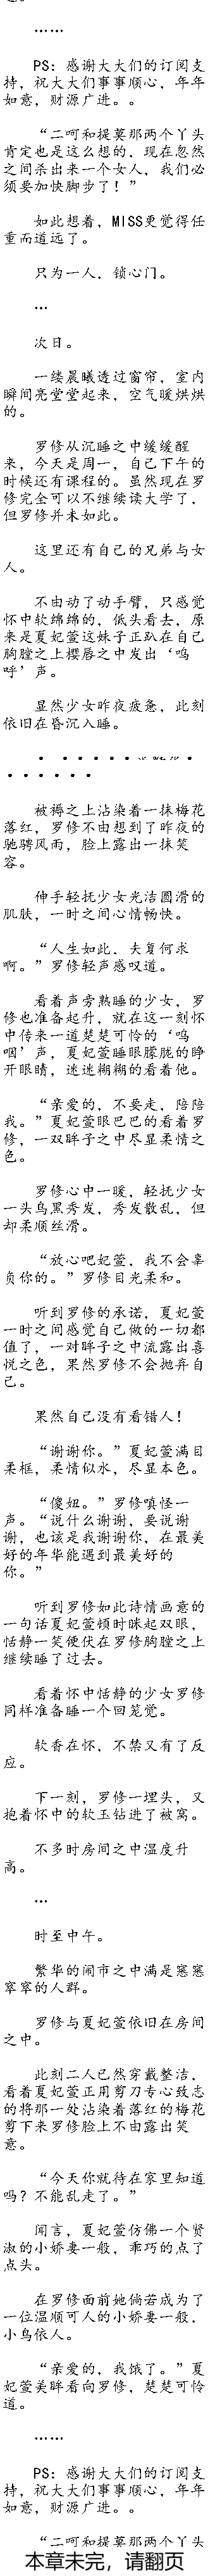 ……
PS：感谢大大们的订阅支
持，祝大大们事事顺心，年年
如意，财源广进。。
“二呵和提莫那两个丫头
肯定也是这么想的，现在忽然
之间杀出来一个女人，我们必
须要加快脚步了！”
如此想着，MISS更觉得任
重而道远了。
只为一人，锁心门。
…
次日。
一缕晨曦透过窗帘，室内
瞬间亮堂堂起来，空气暖烘烘
的。
罗修从沉睡之中缓缓醒
来，今天是周一，自己下午的
时候还有课程的。虽然现在罗
修完全可以不继续读大学了，
但罗修并未如此。
这里还有自己的兄弟与女
人。
不由动了动手臂，只感觉
怀中软绵绵的，低头看去，原
来是夏妃萱这妹子正趴在自己
胸膛之上樱唇之中发出‘呜
呼’声。
显然少女昨夜疲惫，此刻
依旧在昏沉入睡。
被褥之上沾染着一抹梅花
落红，罗修不由想到了昨夜的
驰骋风雨，脸上露出一抹笑
容。
伸手轻抚少女光洁圆滑的
肌肤，一时之间心情畅快。
“人生如此，夫复何求
啊。”罗修轻声感叹道。
看着声旁熟睡的少女，罗
修也准备起升，就在这一刻怀
中传来一道楚楚可怜的‘呜
咽’声，夏妃萱睡眼朦胧的睁
开眼睛，迷迷糊糊的看着他。
“亲爱的，不要走，陪陪
我。”夏妃萱眼巴巴的看着罗
修，一双眸子之中尽显柔情之
色。
罗修心中一暖，轻抚少女
一头乌黑秀发，秀发散乱，但
却柔顺丝滑。
“放心吧妃萱，我不会辜
负你的。”罗修目光柔和。
听到罗修的承诺，夏妃萱
一时之间感觉自己做的一切都
值了，一对眸子之中流露出喜
悦之色，果然罗修不会抛弃自
己。
果然自己没有看错人！
“谢谢你。”夏妃萱满目
柔框，柔情似水，尽显本色。
“傻妞。”罗修嗔怪一
声。“说什么谢谢，要说谢
谢，也该是我谢谢你，在最美
好的年华能遇到最美好的
你。”
听到罗修如此诗情画意的
一句话夏妃萱顿时眯起双眼，
恬静一笑便伏在罗修胸膛之上
继续睡了过去。
看着怀中恬静的少女罗修
同样准备睡一个回笼觉。
软香在怀，不禁又有了反
应。
下一刻，罗修一埋头，又
抱着怀中的软玉钻进了被窝。
不多时房间之中温度升
高。
…
时至中午。
繁华的闹市之中满是窸窸
窣窣的人群。
罗修与夏妃萱依旧在房间
之中。
此刻二人已然穿戴整洁，
看着夏妃萱正用剪刀专心致志
的将那一处沾染着落红的梅花
剪下来罗修脸上不由露出笑
意。
“今天你就待在家里知道
吗？不能乱走了。”
闻言，夏妃萱仿佛一个贤
淑的小娇妻一般，乖巧的点了
点头。
在罗修面前她倘若成为了
一位温顺可人的小娇妻一般，
小鸟依人。
“亲爱的，我饿了。”夏
妃萱美眸看向罗修，楚楚可怜
道。
……
PS：感谢大大们的订阅支
持，祝大大们事事顺心，年年
如意，财源广进。。
“二呵和提莫那两个丫头
本章未完，请翻页